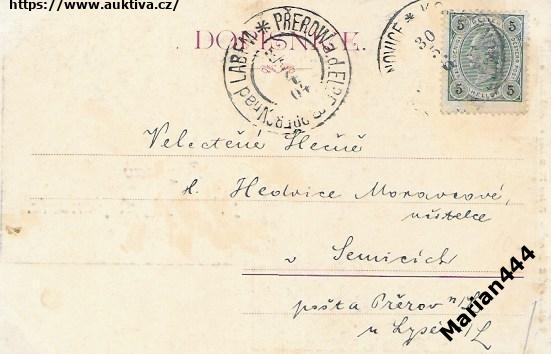 https://www.auktiva.cz/
DOPISNICE.
PŘEROW a.d. ELBE
PŘEROV nad LABEM
04
NOVICE * KO
30
5 5
5 5
Velectěné slečně
sl. Hedvice Moravcové,
učitelce
v Semicích
pošta Přerov n/L
u Lysé n/L
Marian444